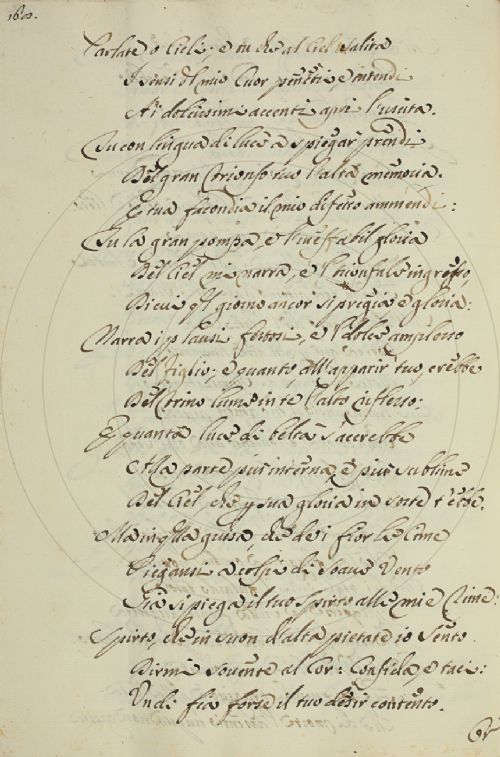 1600.
Parlate o Cieli: e tu che al Ciel salita
I sensi dl mio Cuor penetri, e intendi
A i dolcissimi accenti apri l'uscita.
Tu con lingua di luce a spiegar prendi
Del gran Trionfo tuo l'alta memoria.
E tua facondia il mio difetto ammendi:
Tu la gran pompa, e l'ineffabil gloria
Del Ciel mi narra, e l'trionfale ingresso,
Di cui ql giorno ancor si pregia e gloria:
Narra i plausi festosi, e l'dolce amplesso
Del figlio; e quanto, all'apparir tuo, crebbe
Del trino lume in te l'alto riflesso:
E quanta luce di beltà s'accrebbe
Alla parte piu interna, e piu sublime
Del Ciel, che p sua gloria in sorte t'ebbe.
Ma in qlla guisa, che de i fior le Cime
Piegansi a i colpi di soave Vento
Già si piega il tuo Spirto alle mie Rime:
Spirto, che in suon d'alta pietate io sento
Dirmi sovente al Cor: Confida, e taci:
Un dì fia forse il tuo desir contento.
Or